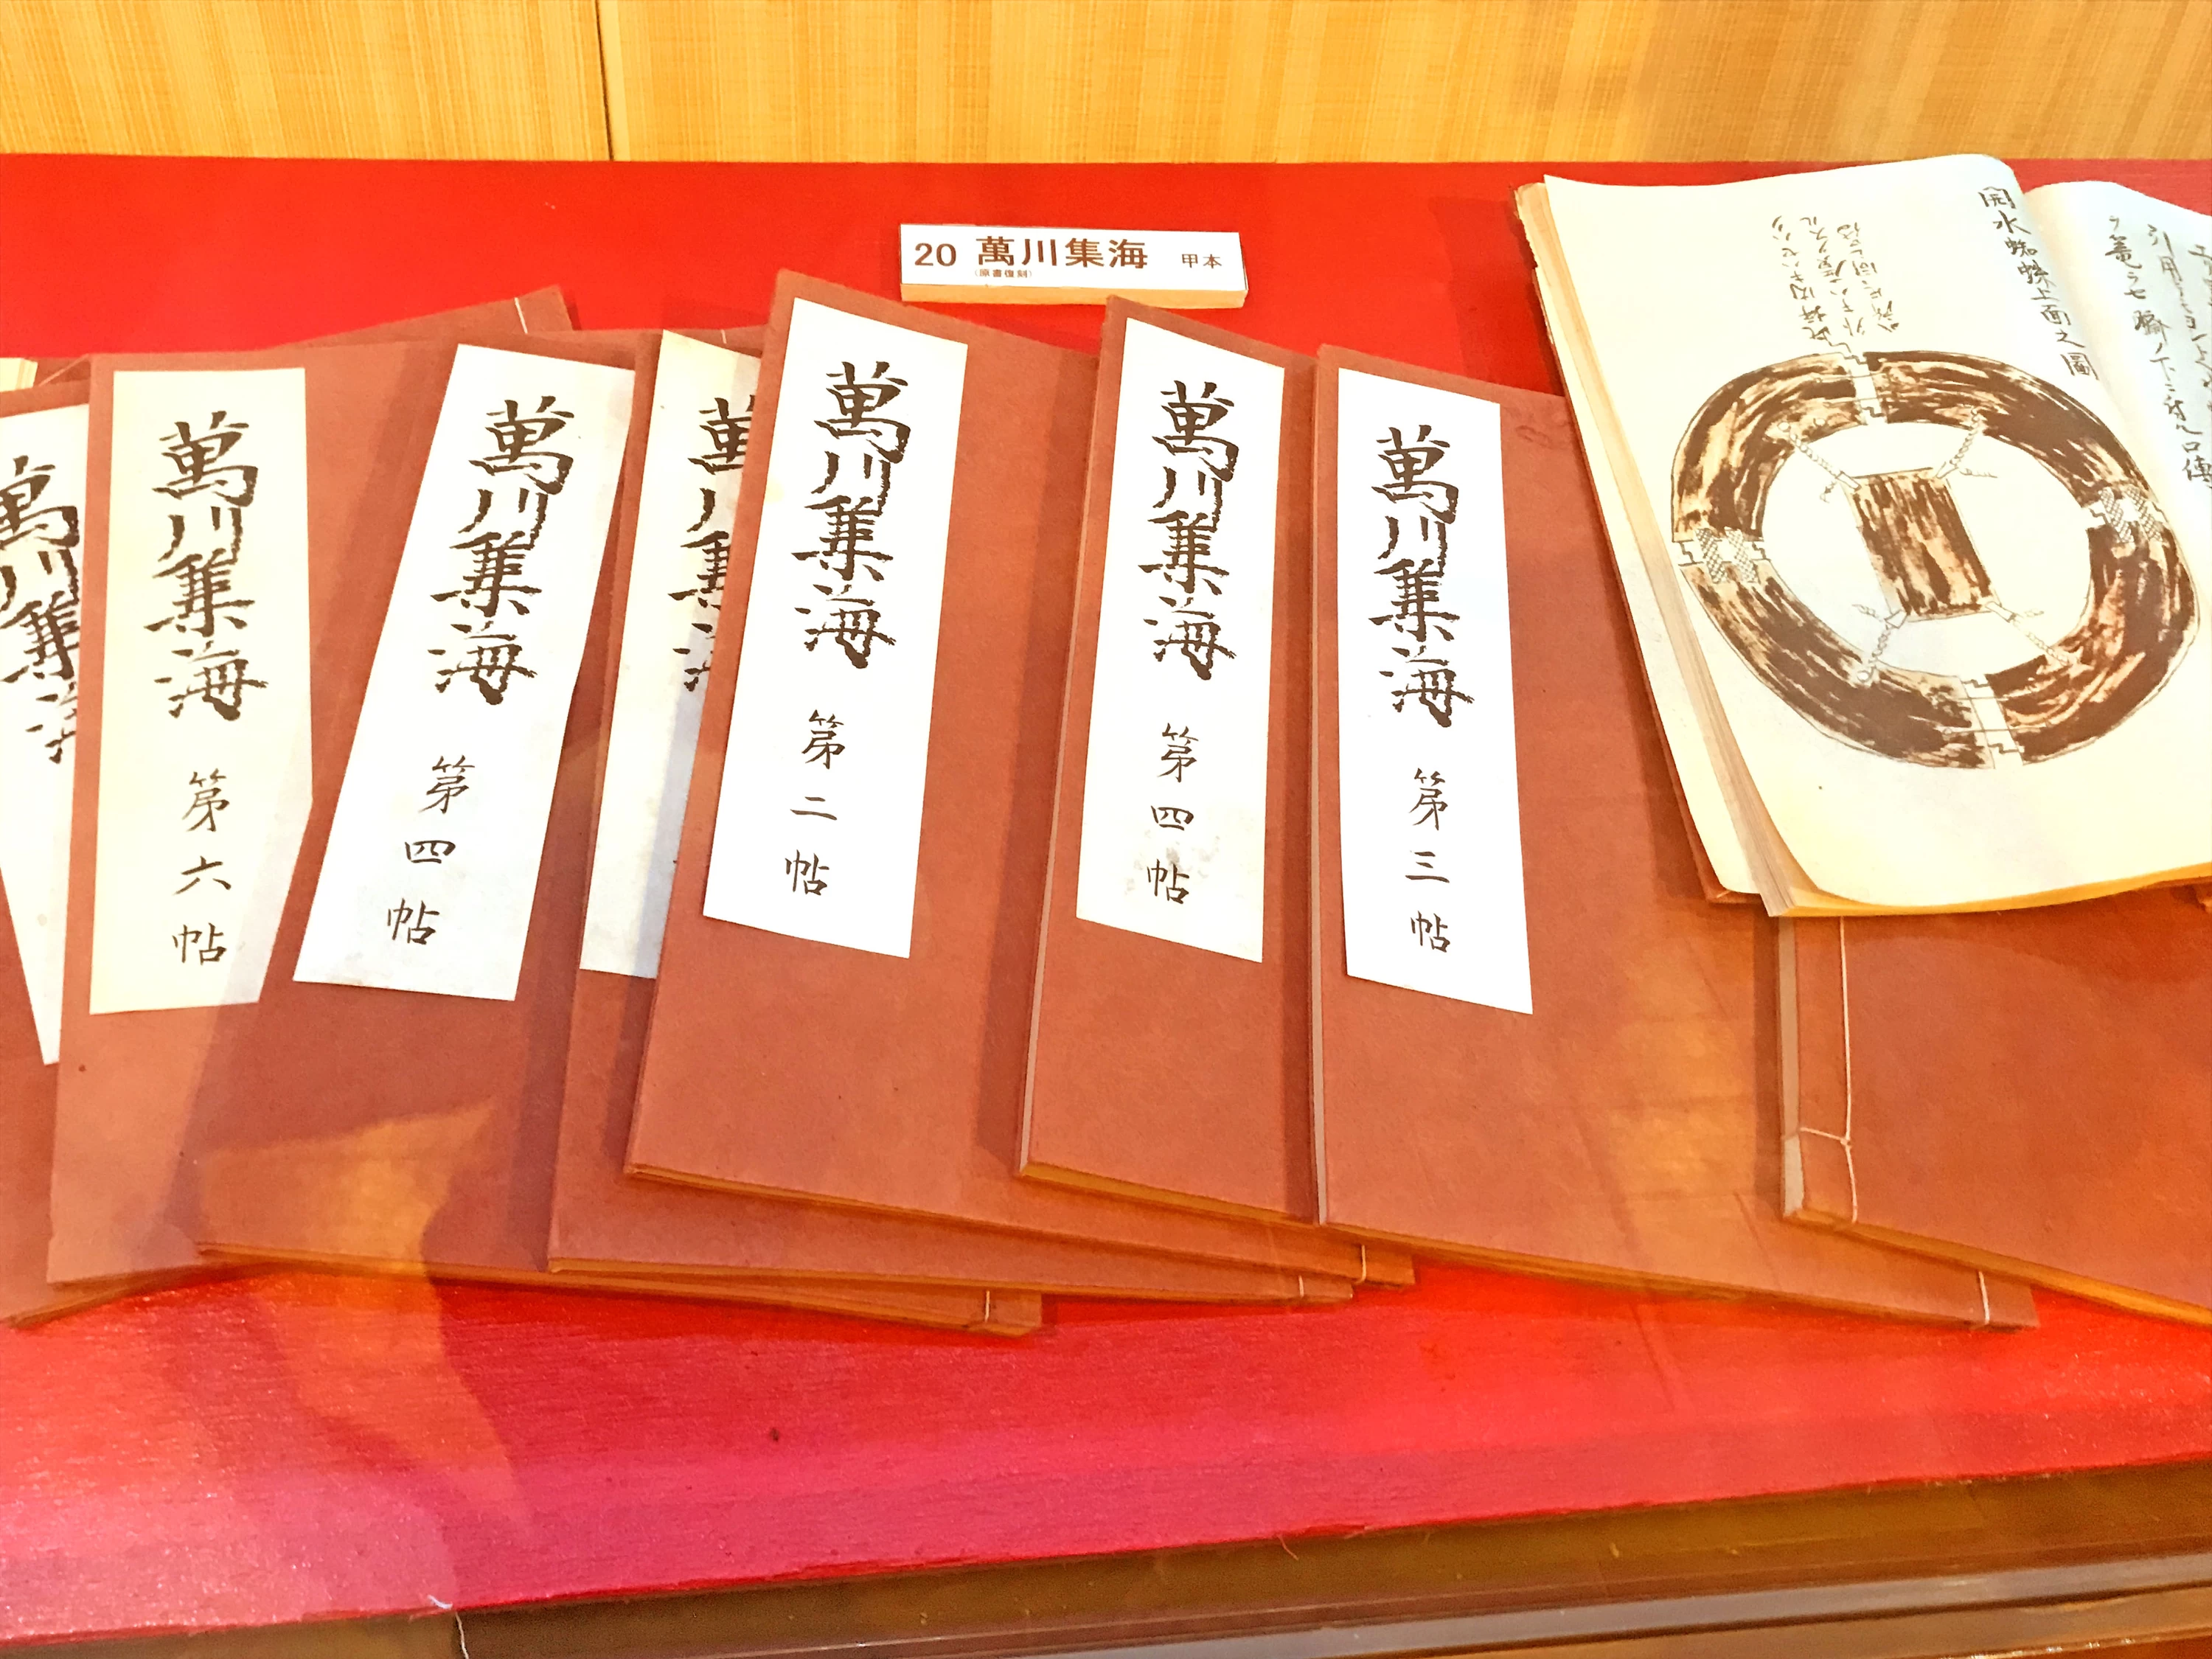 20 萬川集海 甲本
(原書復刻)
萬川集
萬川集海 第六帖
萬川集海 第四帖
萬川集
萬川集海 第二帖
萬川集海 第四帖
萬川集海 第三帖
開水蜘蛛上面之圖